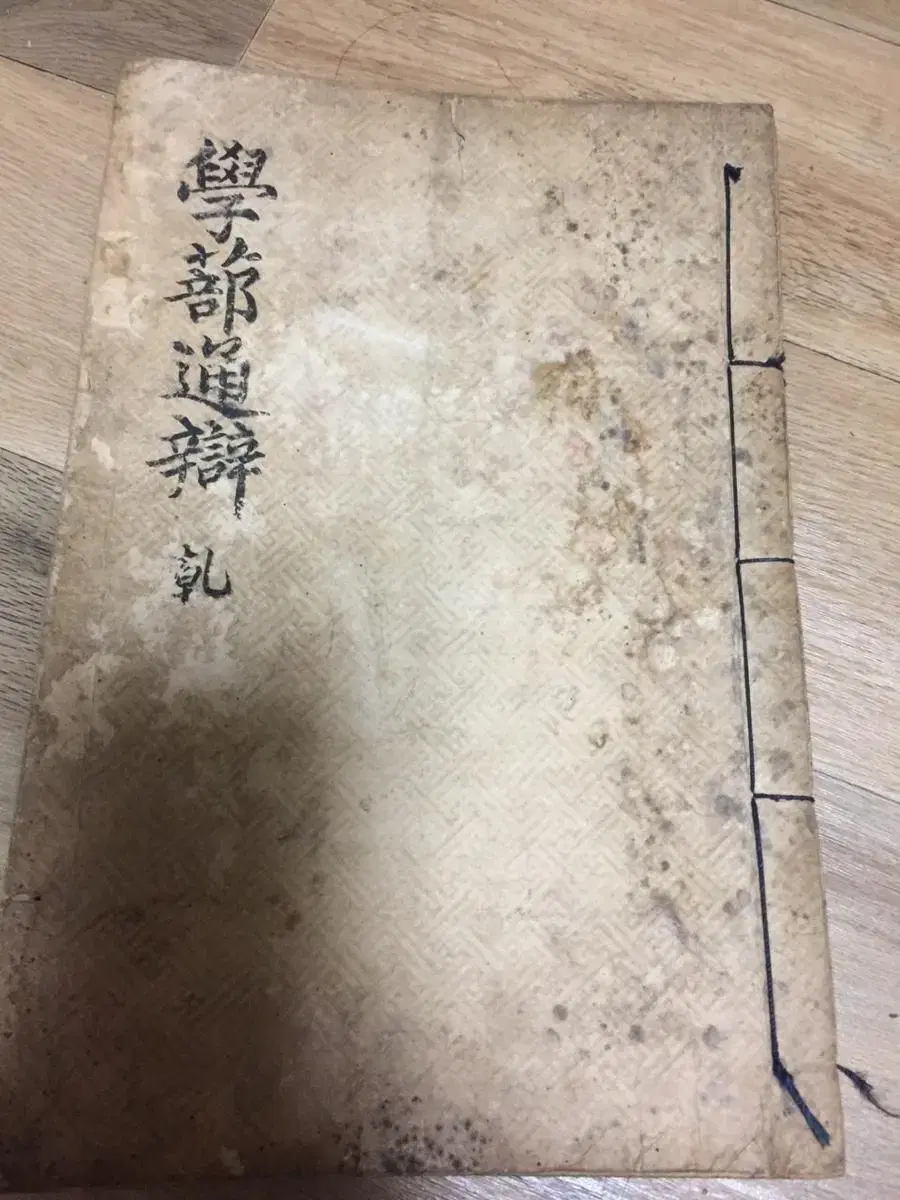 學蔀通辯 乾